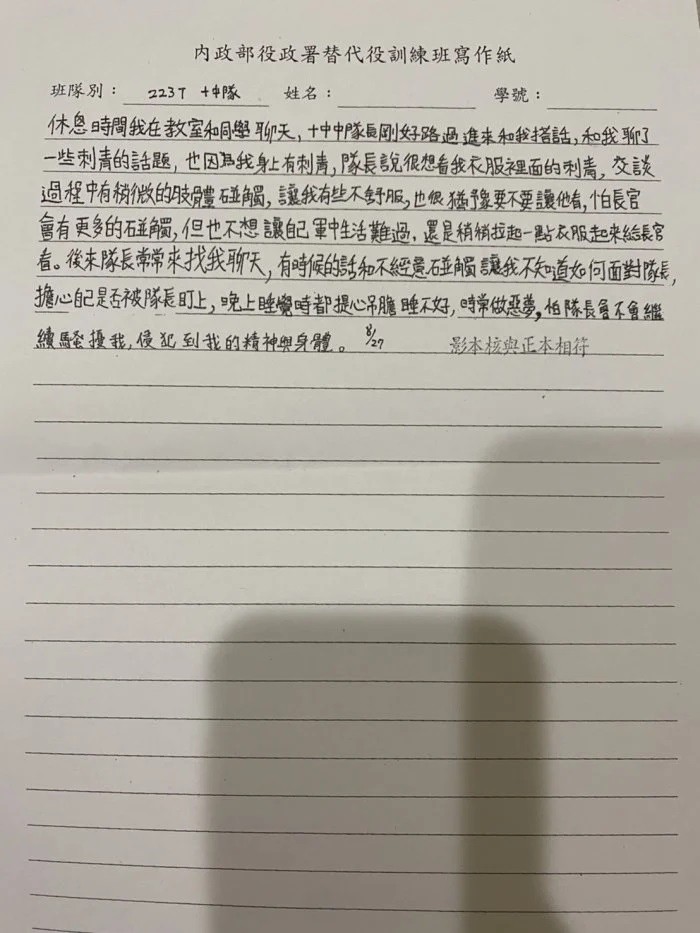 內政部役政署替代役訓練班寫作紙
班隊別： 223T 十中隊 姓名： 學號：
休息時間我在教室和同學聊天，十中中隊長剛好路過進來和我搭話，和我聊了
一些刺青的話題，也因為我身上有刺青，隊長說很想看我衣服裡面的刺青，交談
過程中有稍微的肢體碰觸，讓我有些不舒服，也很猶豫要不要讓他看，怕長官
會有更多的碰觸，但也不想讓自己軍中生活難過，還是稍稍拉起一點衣服起來給長官
看。後來隊長常常來找我聊天，有時候的話和不經意碰觸讓我不知道如何面對隊長，
擔心自己是否被隊長盯上，晚上睡覺時都提心吊膽睡不好，時常做惡夢，怕隊長會不會繼
續騷擾我，侵犯到我的精神與身體。 8/27 影本核與正本相符